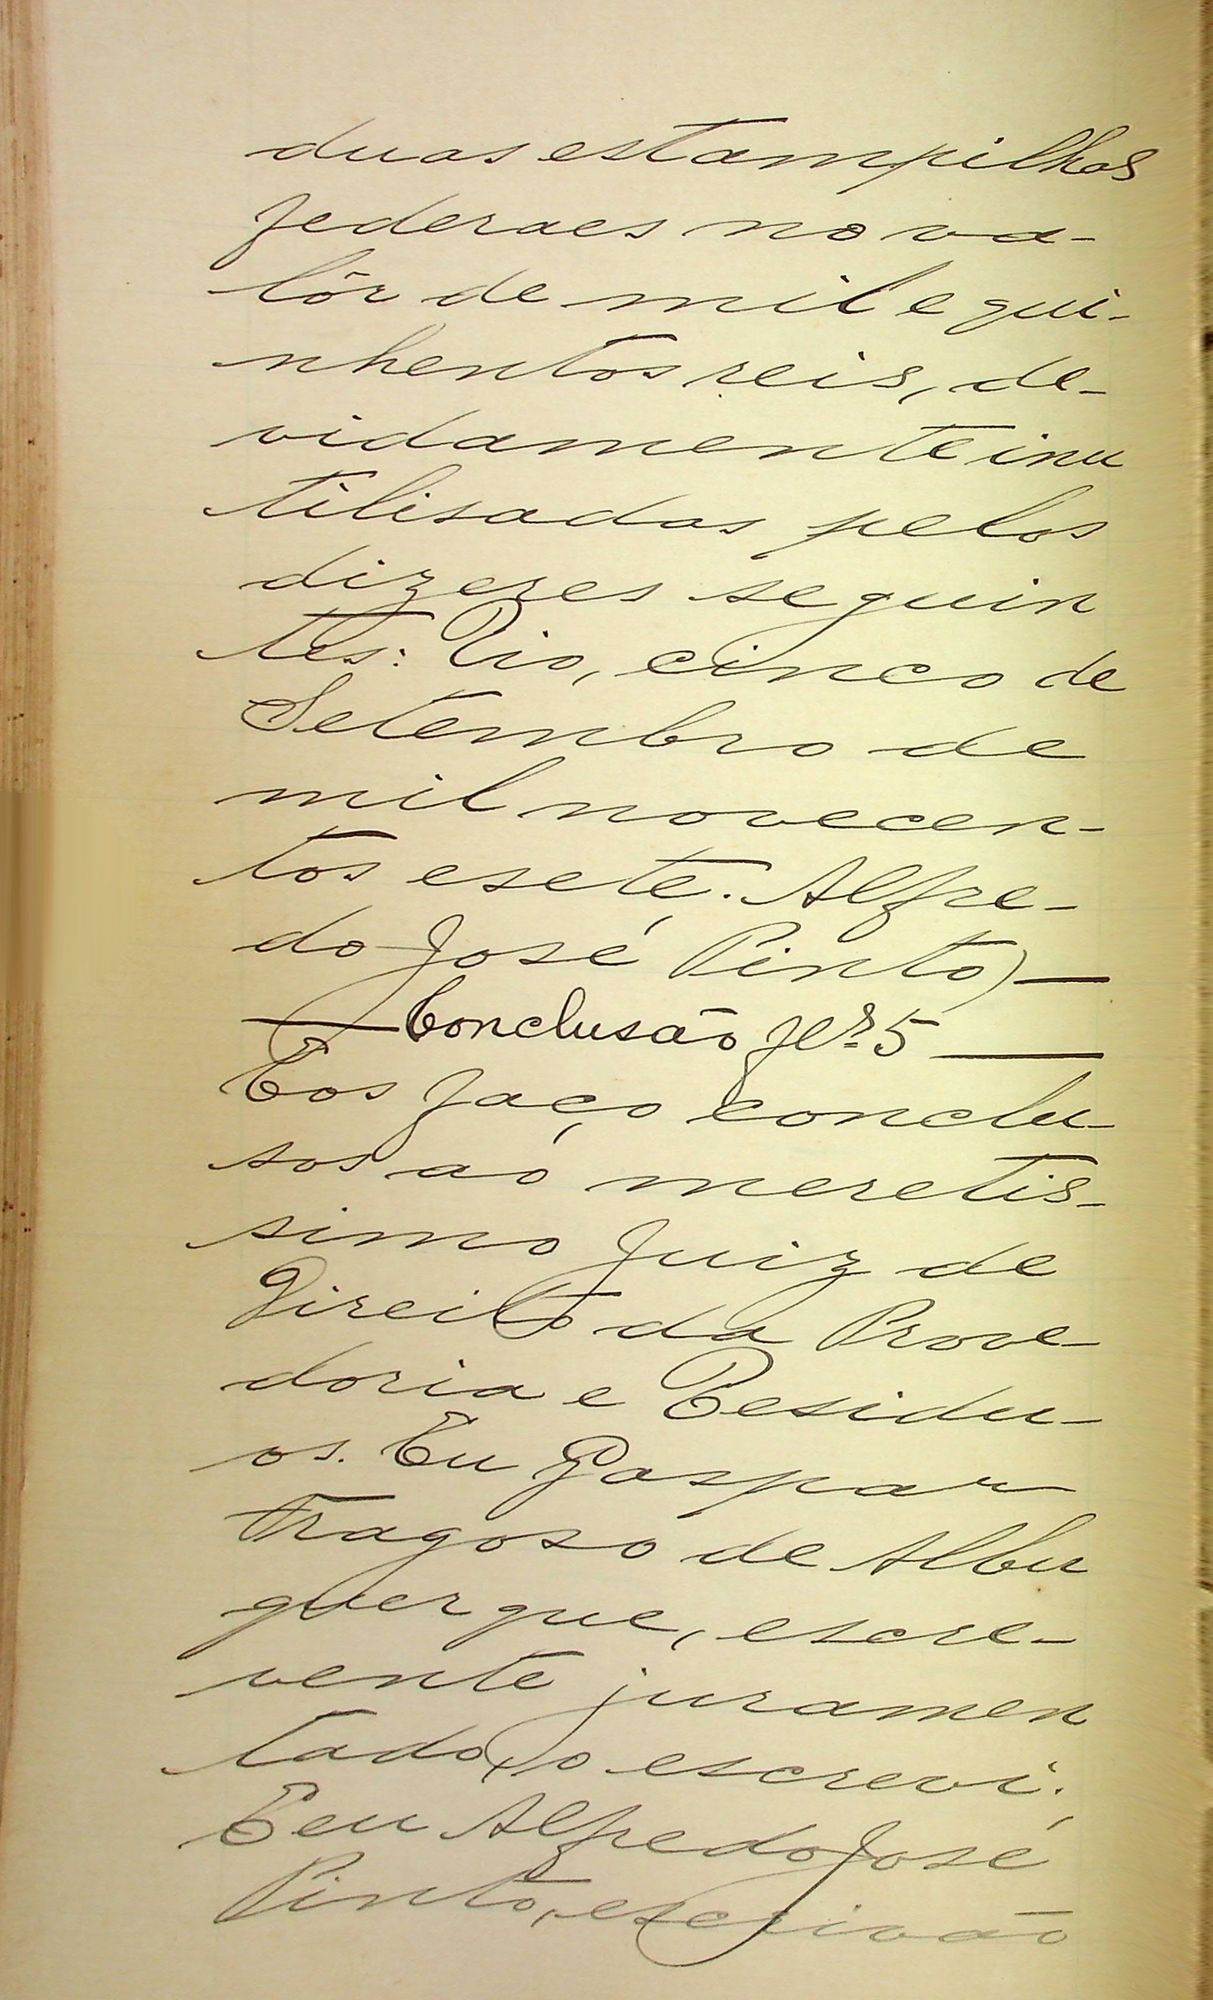 duas estampilhas
federaes no va-
lôr de mil e qui-
nhentos reis, de-
vidamente inu
tilisadas pelos
dizeres seguin
tes: Rio, cinco de
Setembro de
mil novecen-
tos e sete. Alfre-
do José Pinto) —
— Conclusão fls. 5 —
E os faço conclu-
sos ao meretis-
simo Juiz de
Direito da Prove-
doria e Residu-
os. Eu Gaspar
Fragoso de Albu
querque, escre-
vente juramen
tado, o escrevi.
E eu Alfredo José
Pinto, escrivão